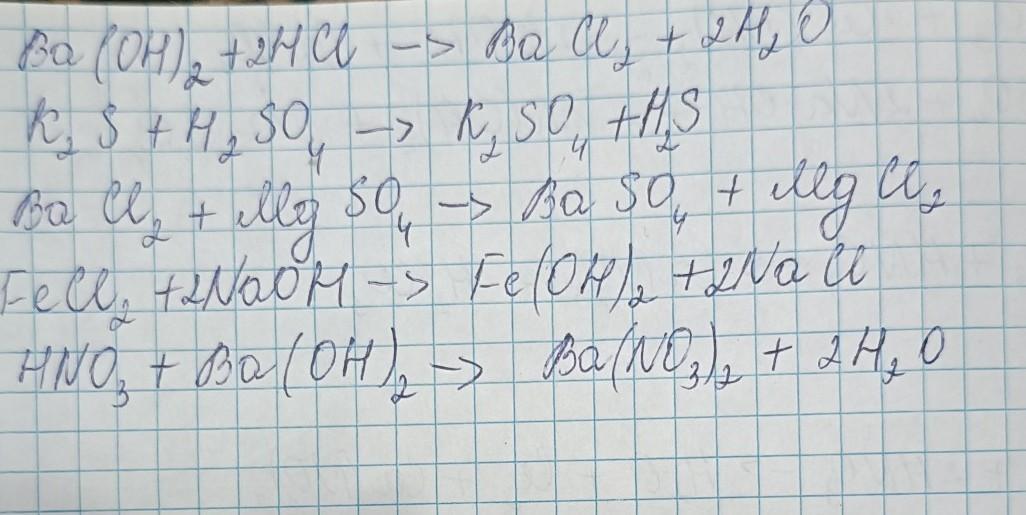 Ba(OH)₂ + 2HCl → BaCl₂ + 2H₂O
K₂S + H₂SO₄ → K₂SO₄ + H₂S
BaCl₂ + MgSO₄ → BaSO₄ + MgCl₂
FeCl₂ + 2NaOH → Fe(OH)₂ + 2NaCl
HNO₃ + Ba(OH)₂ → Ba(NO₃)₂ + 2H₂O